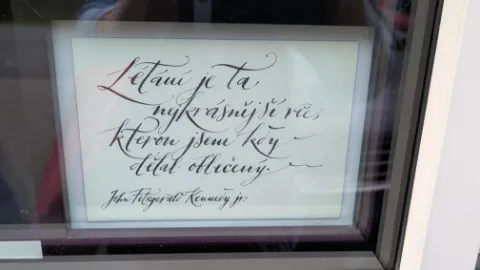 Létání je ta
nejkrásnější věc,
kterou jsem kdy
dělal oblečený.
John Fitzgerald Kennedy, jr.